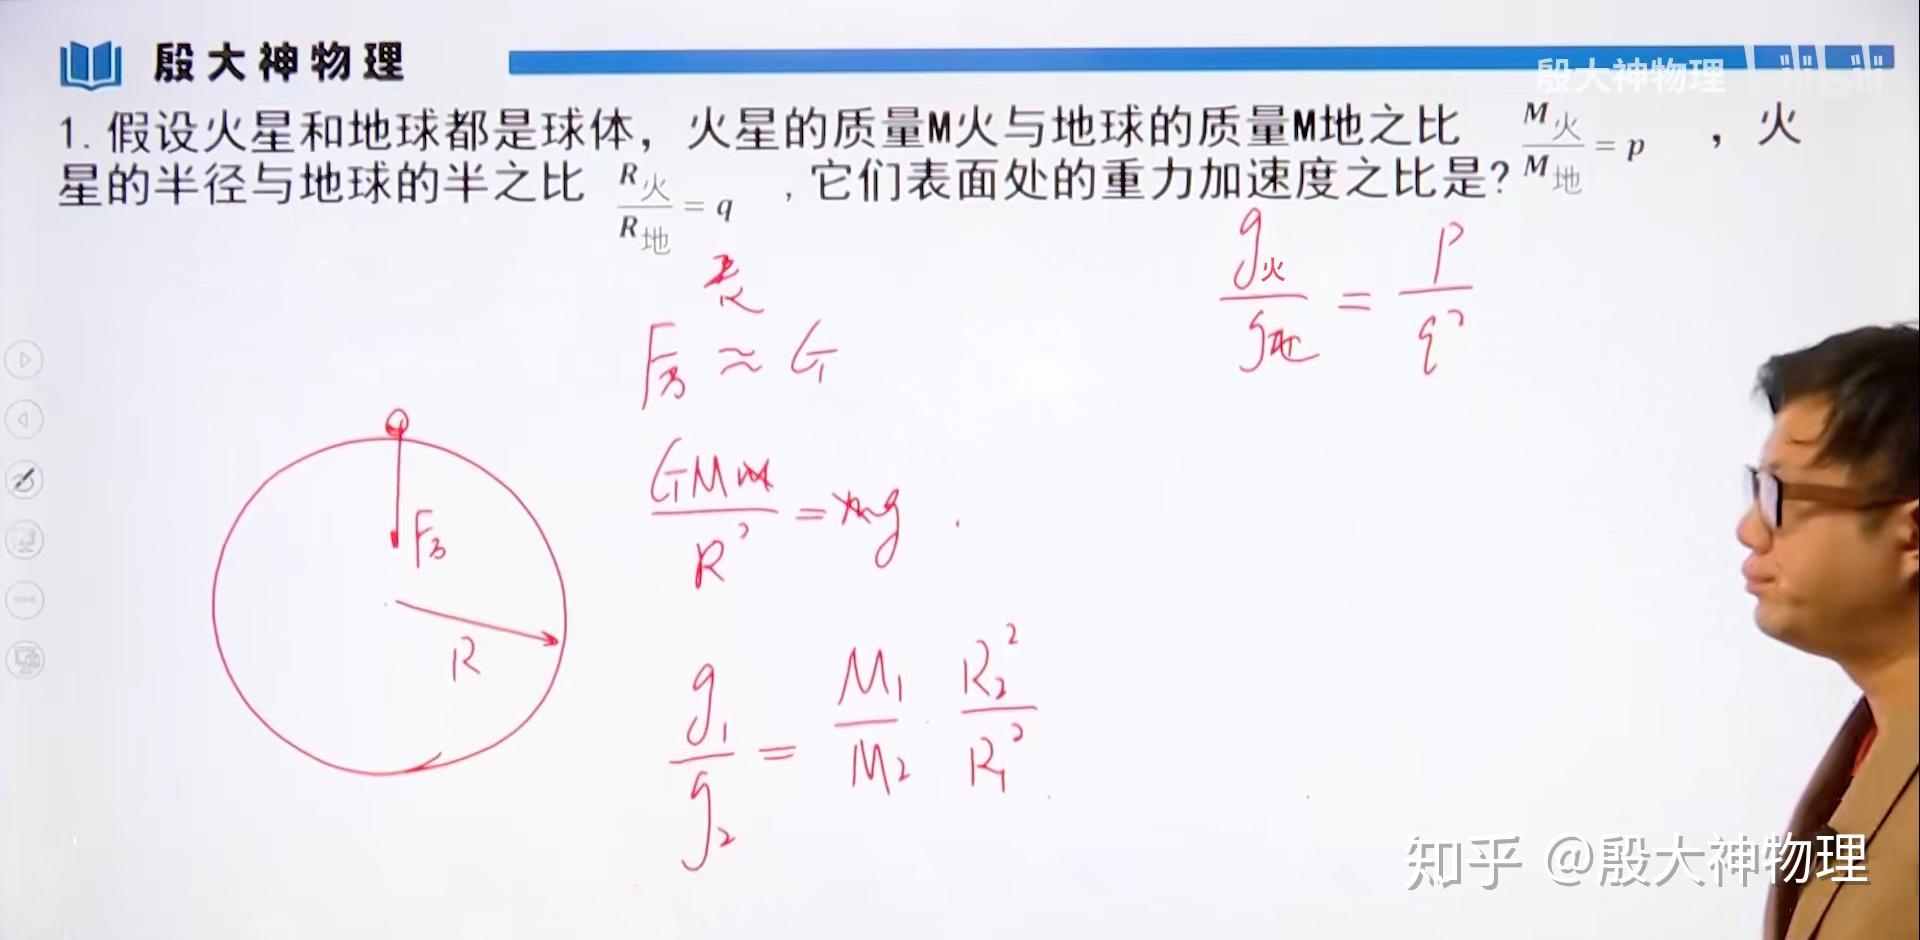 殷大神物理
殷大神物理 bilibili
1. 假设火星和地球都是球体，火星的质量M火与地球的质量M地之比 M火/M地 = p ，火
星的半径与地球的半之比 R火/R地 = q ,它们表面处的重力加速度之比是?
表
F万 ≈ G
g火/g地 = p/q²
GMm/R² = mg
F万
R
g₁/g₂ = M₁/M₂ · R₂²/R₁²
知乎 @殷大神物理